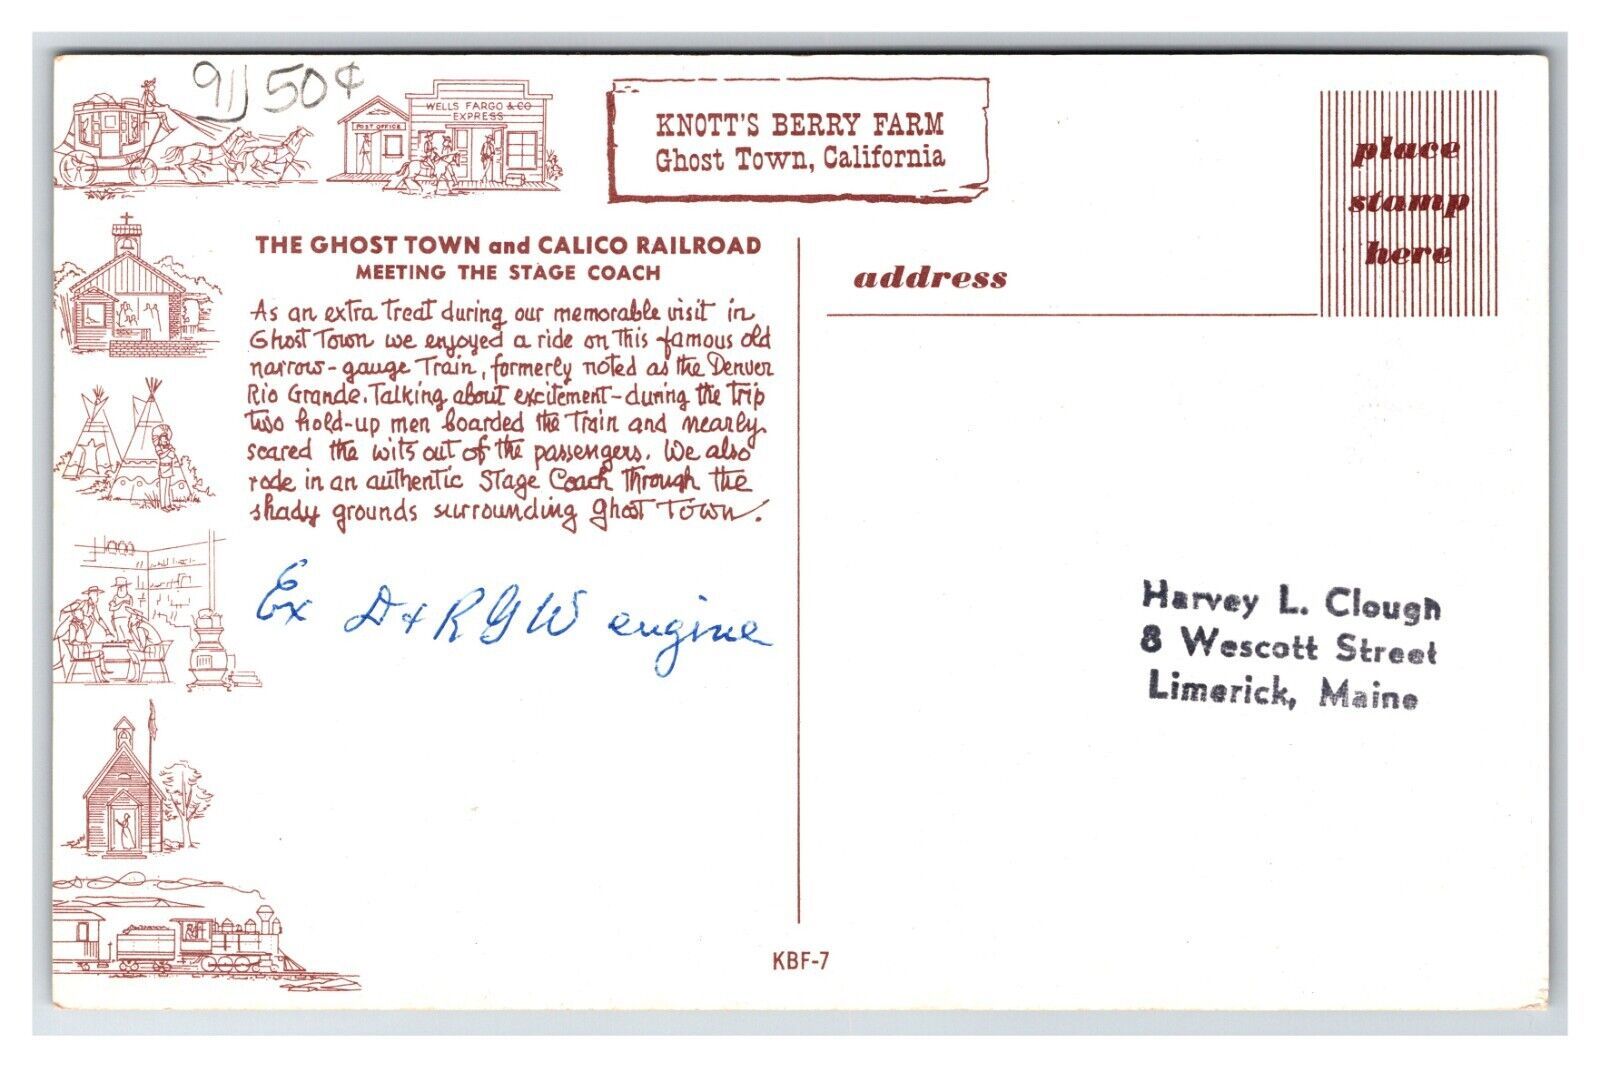 911 50¢
POST OFFICE
WELLS FARGO & CO
EXPRESS
KNOTT'S BERRY FARM
Ghost Town, California
place
stamp
here
THE GHOST TOWN and CALICO RAILROAD
MEETING THE STAGE COACH
As an extra treat during our memorable visit in
Ghost Town we enjoyed a ride on this famous old
narrow-gauge Train, formerly noted as the Denver
Rio Grande. Talking about excitement-during the trip
two hold-up men boarded the Train and nearly
scared the wits out of the passengers. We also
rode in an authentic Stage Coach through the
shady grounds surrounding Ghost Town.
address
Ex D+RGW engine
Harvey L. Clough
8 Wescott Street
Limerick, Maine
KBF-7